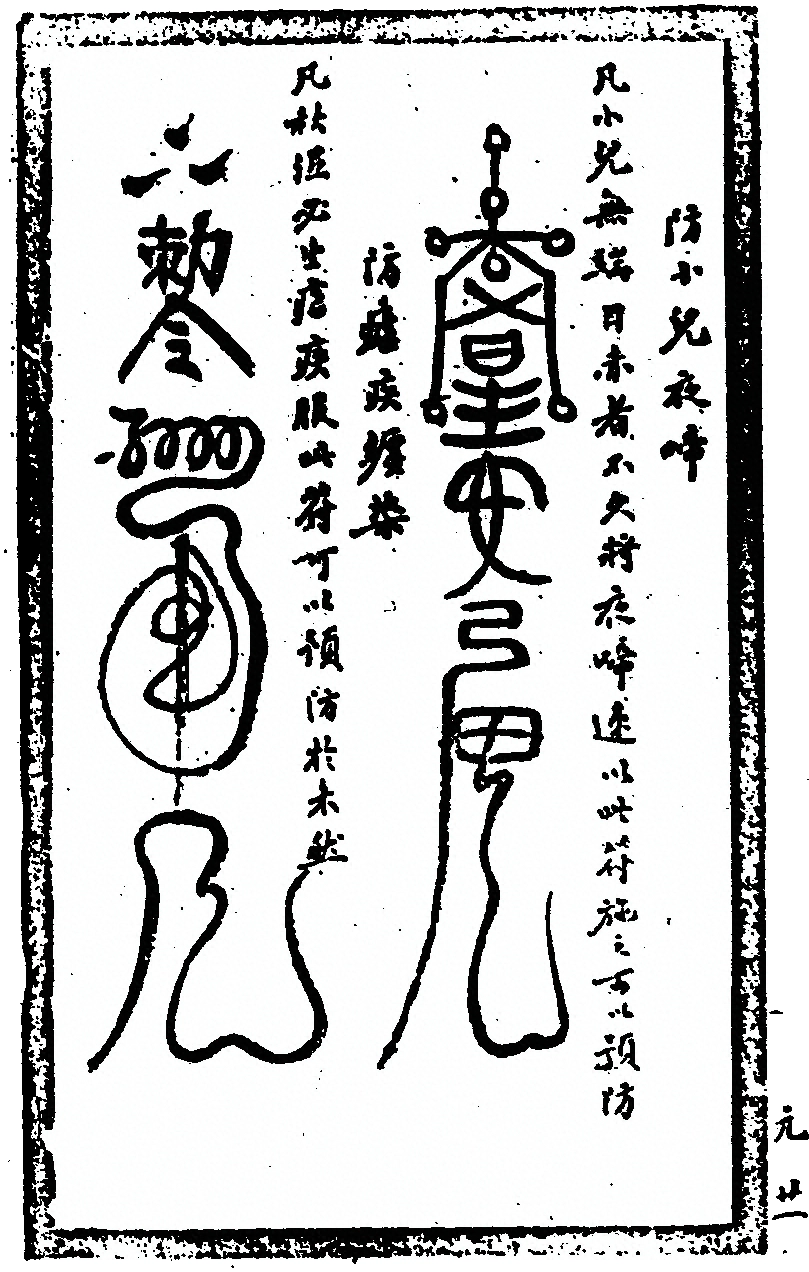 防小兒夜啼
凡小兒無端日亦者不久將夜啼速以此符施之可以預防
防瘧疾纏染
凡秋涼必生瘧疾服此符可以預防於未然
勅令
元廿一